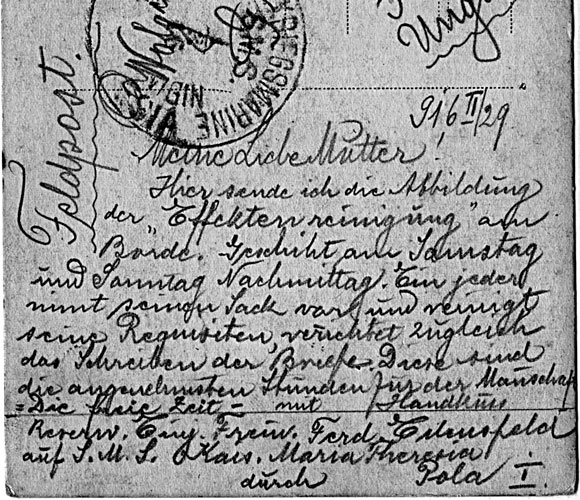 Ung
916 II/29
Feldpost.
Meine Liebe Mutter!
Hier sende ich die Abbildung
der "Effektenreinigung" am
Borde. Geschiht am Samstag
und Sonntag Nachmittag. Ein jeder
nimt seinen Sack vor, und reinigt
seine Requisiten, verichtet zugleich
das Schreiben der Briefe. Diese sind
die angenehmsten Stunden für der Manschaf
=Die freie Zeit= mit Handkuss
Reserv. Einj. Freiw. Ferd.
auf S. M. S. Kais. Maria Theresia
durch Pola I.